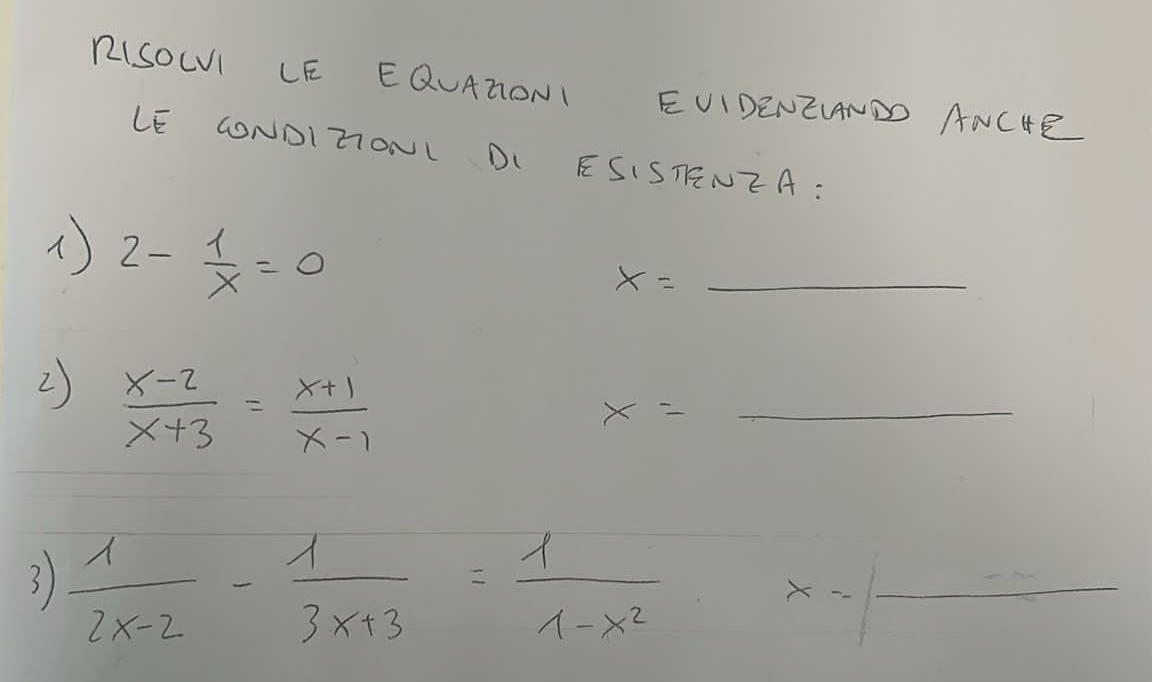 RISOLVI LE EQUAZIONI EVIDENZIANDO ANCHE
LE CONDIZIONI DI ESISTENZA:
1) 2 - 1/x = 0 x = ________
2) (x-2)/(x+3) = (x+1)/(x-1) x = ________
3) 1/(2x-2) - 1/(3x+3) = 1/(1-x²) x = ________